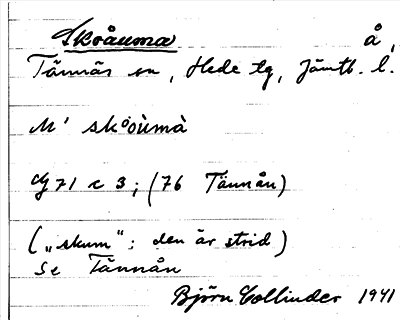 Skoåuma å,
Tännäs sn, Hede tg, Jämtl. l.
M' skoùmà
Gg 71 c 3; (76 Tännån)
(„skum“; den är strid)
Se Tännån
Björn Collinder 1941